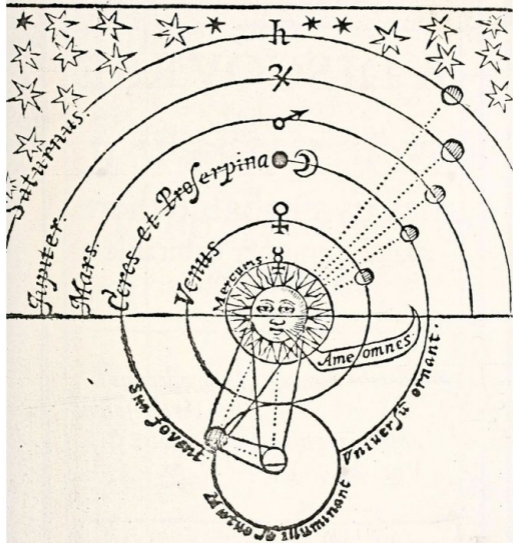 Saturnus.
Jupiter.
Mars.
Ceres et Proserpina
Venus
Mercurius.
A me omnes.
Sua fovent
Universū ornant.
illuminant